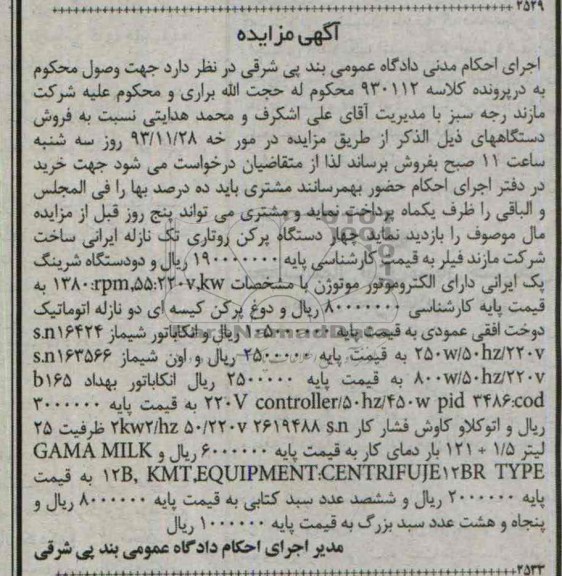 ۲۵۲۹
آگهی مزایده
اجرای احکام مدنی دادگاه عمومی بند پی شرقی در نظر دارد جهت وصول محکوم
به درپرونده کلاسه ۹۳۰۱۱۲ محکوم له حجت الله براری و محکوم علیه شرکت
مازند رجه سبز با مدیریت آقای علی اشکرف و محمد هدایتی نسبت به فروش
دستگاههای ذیل الذکر از طریق مزایده در مور خه ۹۳/۱۱/۲۸ روز سه شنبه
ساعت ۱۱ صبح بفروش برساند لذا از متقاضیان درخواست می شود جهت خرید
در دفتر اجرای احکام حضور بهمرسانند مشتری باید ده درصد بها را فی المجلس
و الباقی را ظرف یکماه پرداخت نماید و مشتری می تواند پنج روز قبل از مزایده
مال موصوف را بازدید نماید چهار دستگاه پرکن روتاری تک نازله ایرانی ساخت
شرکت مازند فیلر به قیمت کارشناسی پایه ۱۹۰۰۰۰۰۰۰ ریال و دودستگاه شرینگ
پک ایرانی دارای الکتروموتور موتوژن با مشخصات ۱۳۸۰:rpm,۵۵:۲۲۰v,kw به
قیمت پایه کارشناسی ۸۰۰۰۰۰۰۰ ریال و دوغ پرکن کیسه ای دو نازله اتوماتیک
دوخت افقی عمودی به قیمت پایه ریال و انکاباتور شیماز s.n۱۶۴۲۴
۲۵۰w/۵۰hz/۲۲۰v به قیمت پایه ۲۵۰۰۰۰۰ ریال و اون شیماز s.n۱۶۳۵۶۶
۸۰۰w/۵۰hz/۲۲۰v به قیمت پایه ۲۵۰۰۰۰۰ ریال انکاباتور بهداد b۱۶۵
۲۲۰V controller/۵۰hz/۴۵۰w pid ۳۴۸۶:cod به قیمت پایه ۳۰۰۰۰۰۰
ریال و اتوکلاو کاوش فشار کار ۲kw۲/hz ۵۰/۲۲۰v ۲۶۱۹۴۸۸ s.n ظرفیت ۲۵
لیتر ۱/۵ + ۱۲۱ بار دمای کار به قیمت پایه ۶۰۰۰۰۰۰ ریال و GAMA MILK
۱۲B, KMT,EQUIPMENT:CENTRIFUJE۱۲BR TYPE به قیمت
پایه ۲۰۰۰۰۰۰ ریال و ششصد عدد سبد کتابی به قیمت پایه ۸۰۰۰۰۰۰ ریال و
پنجاه و هشت عدد سبد بزرگ به قیمت پایه ۱۰۰۰۰۰۰ ریال
مدیر اجرای احکام دادگاه عمومی بند پی شرقی
۲۵۳۳